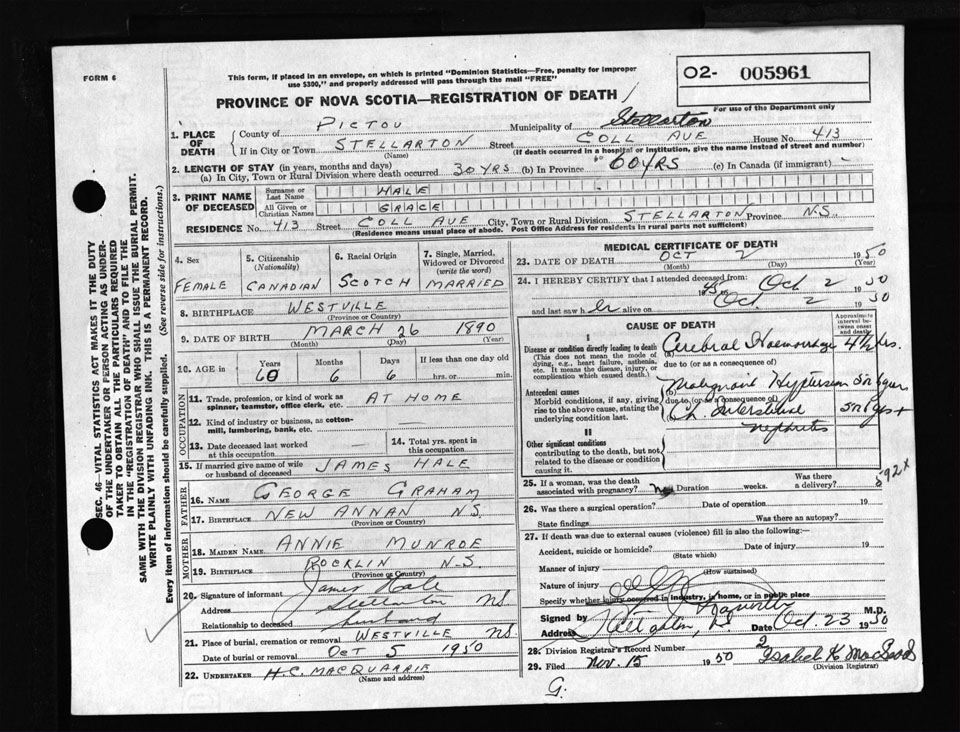 FORM 6
This form, if placed in an envelope, on which is printed "Dominion Statistics—Free, penalty for improper
use $300," and properly addressed will pass through the mail "FREE"
O2- 005961
PROVINCE OF NOVA SCOTIA—REGISTRATION OF DEATH
For use of the Department only
1. PLACE OF DEATH
County of PICTOU Municipality of Stellarton
If in City or Town STELLARTON Street COLL AVE House No. 413
(Name) (If death occurred in a hospital or institution, give the name instead of street and number)
2. LENGTH OF STAY (in years, months and days)
(a) In City, Town or Rural Division where death occurred 30 YRS (b) In Province 60 YRS (c) In Canada (if immigrant)
3. PRINT NAME OF DECEASED
Surname or Last Name HALE
All Given or Christian Names GRACE
RESIDENCE No. 413 Street COLL AVE City, Town or Rural Division STELLARTON Province N.S.
(Residence means usual place of abode. Post Office Address for residents in rural parts not sufficient)
4. Sex
FEMALE
5. Citizenship
(Nationality)
CANADIAN
6. Racial Origin
SCOTCH
7. Single, Married,
Widowed or Divorced
(write the word)
MARRIED
8. BIRTHPLACE WESTVILLE
(Province or Country)
9. DATE OF BIRTH MARCH 26 1890
(Month) (Day) (Year)
10. AGE in
Years Months Days If less than one day old
60 6 6 hrs. or min.
OCCUPATION
11. Trade, profession, or kind of work as
spinner, teamster, office clerk, etc. AT HOME
12. Kind of industry or business, as cotton-
mill, lumbering, bank, etc. —
13. Date deceased last worked
at this occupation —
14. Total yrs. spent in
this occupation
15. If married give name of wife
or husband of deceased JAMES HALE
FATHER
16. NAME GEORGE GRAHAM
17. BIRTHPLACE NEW ANNAN N.S.
(Province or Country)
MOTHER
18. MAIDEN NAME ANNIE MUNROE
19. BIRTHPLACE ROCKLIN N.S.
(Province or Country)
20. Signature of informant James Hale
Address Stellarton NS
Relationship to deceased husband
21. Place of burial, cremation or removal WESTVILLE NS.
Date of burial or removal OCT 5 1950
22. UNDERTAKER H.C. MACQUARRIE
(Name and address)
MEDICAL CERTIFICATE OF DEATH
23. DATE OF DEATH OCT 2 1950
(Month) (Day) (Year)
24. I HEREBY CERTIFY that I attended deceased from:
1945 Oct 2 1950
and last saw her alive on Oct 2 1950
CAUSE OF DEATH
Approximate
interval be-
tween onset
and death
I
Disease or condition directly leading to death
(This does not mean the mode of
dying, e.g., heart failure, asthenia,
etc. It means the disease, injury, or
complication which caused death.)
(a) Cerebral Haemorrhage 4½ hrs.
due to (or as a consequence of)
Antecedent causes
Morbid conditions, if any, giving
rise to the above cause, stating the
underlying condition last.
(b) Malignant Hypertension
due to (or as a consequence of)
Ch. Interstitial
nephritis
II
Other significant conditions
contributing to the death, but not
related to the disease or condition
causing it.
592x
25. If a woman, was the death
associated with pregnancy? No Duration weeks. Was there
a delivery?
26. Was there a surgical operation? Date of operation 19
State findings Was there an autopsy?
27. If death was due to external causes (violence) fill in also the following:—
Accident, suicide or homicide? Date of injury 19
(State which)
Manner of injury
(How sustained)
Nature of injury
Specify whether injury occurred in industry, in home, or in public place
Signed by M.D.
Address Date Oct. 23 1950
28. Division Registrar's Record Number 2
29. Filed Nov. 15 1950 Isabel K. MacLeod
(Division Registrar)
G.
SEC. 46—VITAL STATISTICS ACT MAKES IT THE DUTY
OF THE UNDERTAKER OR PERSON ACTING AS UNDER-
TAKER TO OBTAIN ALL THE PARTICULARS REQUIRED
IN THE "REGISTRATION OF DEATH" AND TO FILE THE
SAME WITH THE DIVISION REGISTRAR WHO SHALL ISSUE THE BURIAL PERMIT.
WRITE PLAINLY WITH UNFADING INK. THIS IS A PERMANENT RECORD.
Every item of information should be carefully supplied. (See reverse side for instructions.)